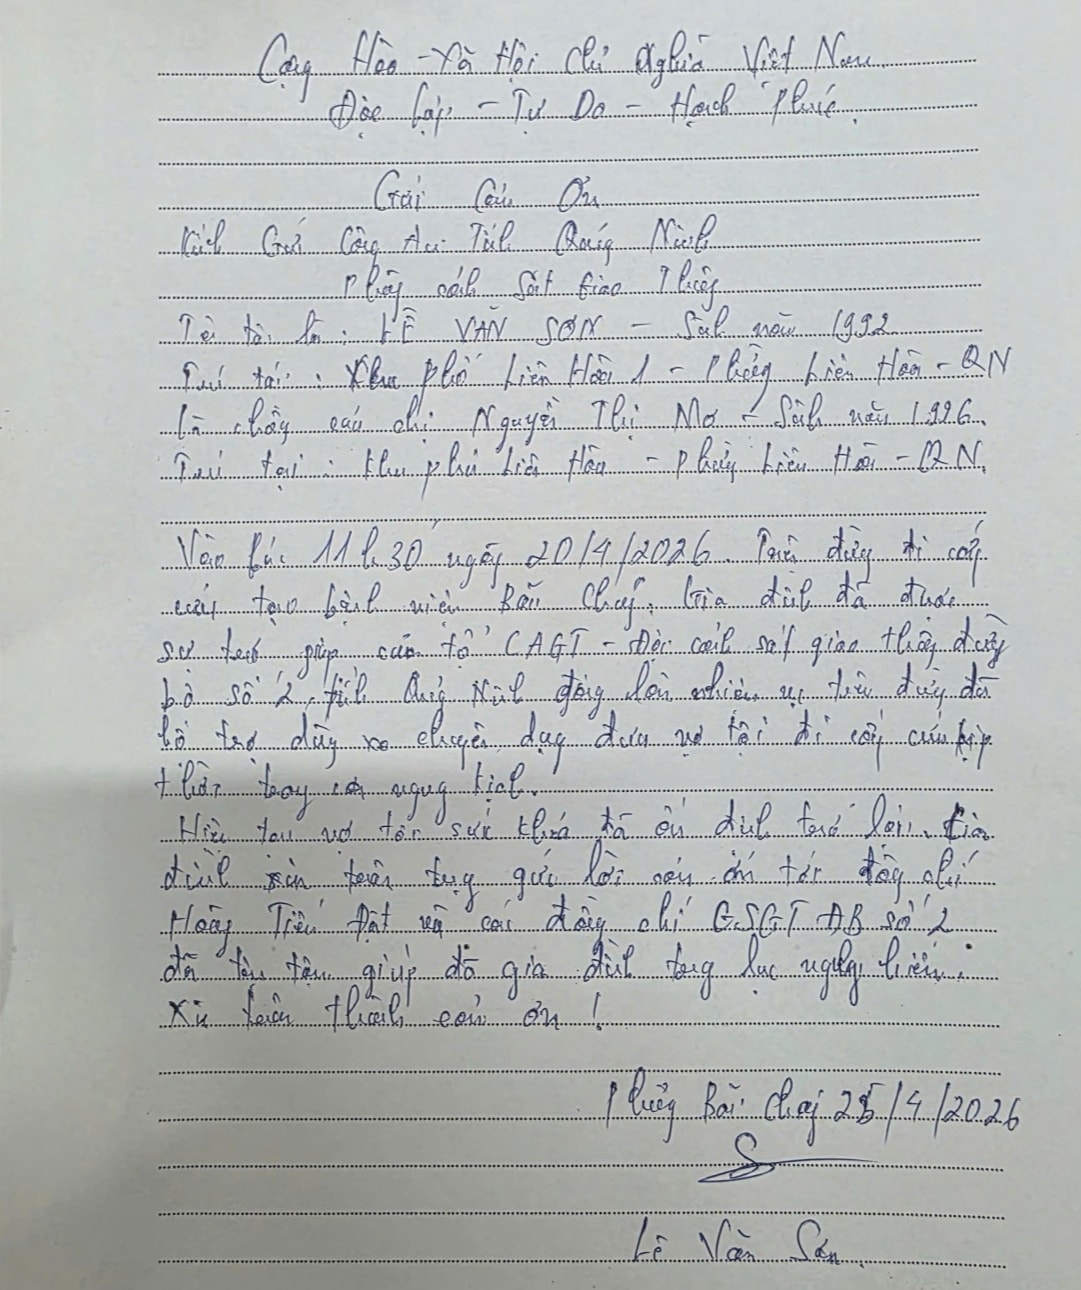 Cộng Hòa - Xã Hội Chủ Nghĩa Việt Nam
Độc Lập - Tự Do - Hạnh Phúc
Giấy Cảm Ơn
Kính Gửi Công An Tỉnh Quảng Ninh
Phòng cảnh Sát Giao Thông
Tên tôi là: LÊ VĂN SƠN - Sinh năm 1992
Trú tại: Khu phố Liên Hòa 1 - Phường Liên Hòa - QN
Là chồng của chị Nguyễn Thị Mơ - Sinh năm 1996
Trú tại: Khu phố Liên Hòa - Phường Liên Hòa - QN.
Vào lúc 11h30 ngày 20/4/2026. Trên đường đi cấp
cứu tại bệnh viện Bãi Cháy, Gia đình đã được
sự trợ giúp của tổ CAGT - Đội cảnh sát giao thông đường
bộ số 2, tỉnh Quảng Ninh đang làm nhiệm vụ trên đường đã
hỗ trợ dùng xe chuyên dụng đưa vợ tôi đi cấp cứu kịp
thời trong cơn nguy kịch.
Hiện tại vợ tôi sức khoẻ đã ổn định trở lại. Gia
đình xin trân trọng gửi lời cảm ơn tới đồng chí
Hoàng Tiến Đạt và các đồng chí CSGT ĐB số 2
đã tận tâm giúp đỡ gia đình trong lúc nguy hiểm.
Xin chân thành cảm ơn!
Phường Bãi Cháy 25/4/2026
Lê Văn Sơn